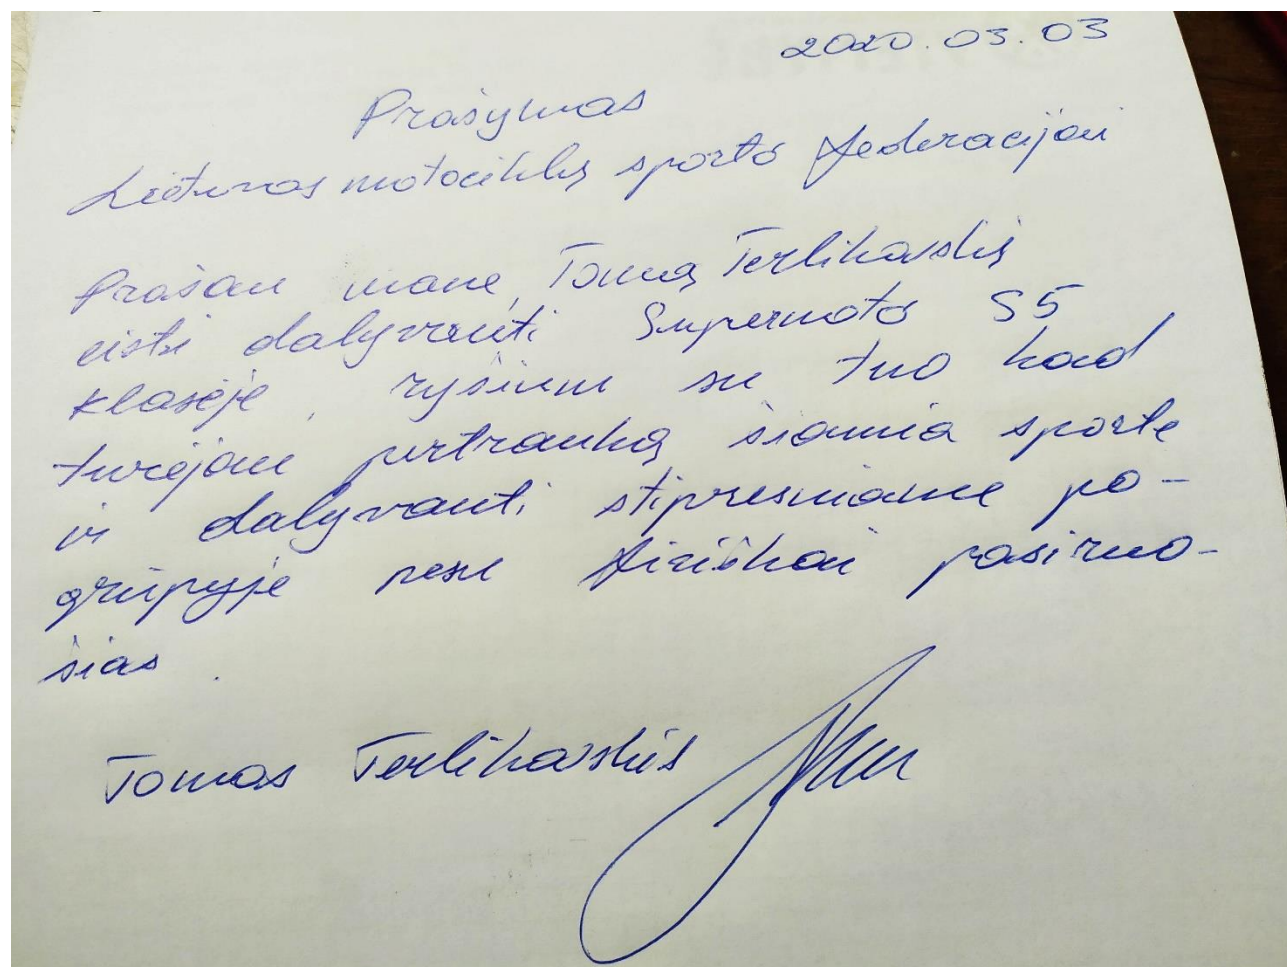 2020.03.03
Prašymas
Lietuvos motociklų sporto federacijai
Prašau mane, Tomą Terlikovskį
eisti dalyvauti Supermoto S5
klasėje, ryšium su tuo kad
turėjau pertrauką šiamia sporte
ir dalyvauti stipresniame po-
grūpyje nesu fiziškai pasiruo-
šias.
Tomas Terlikovskis